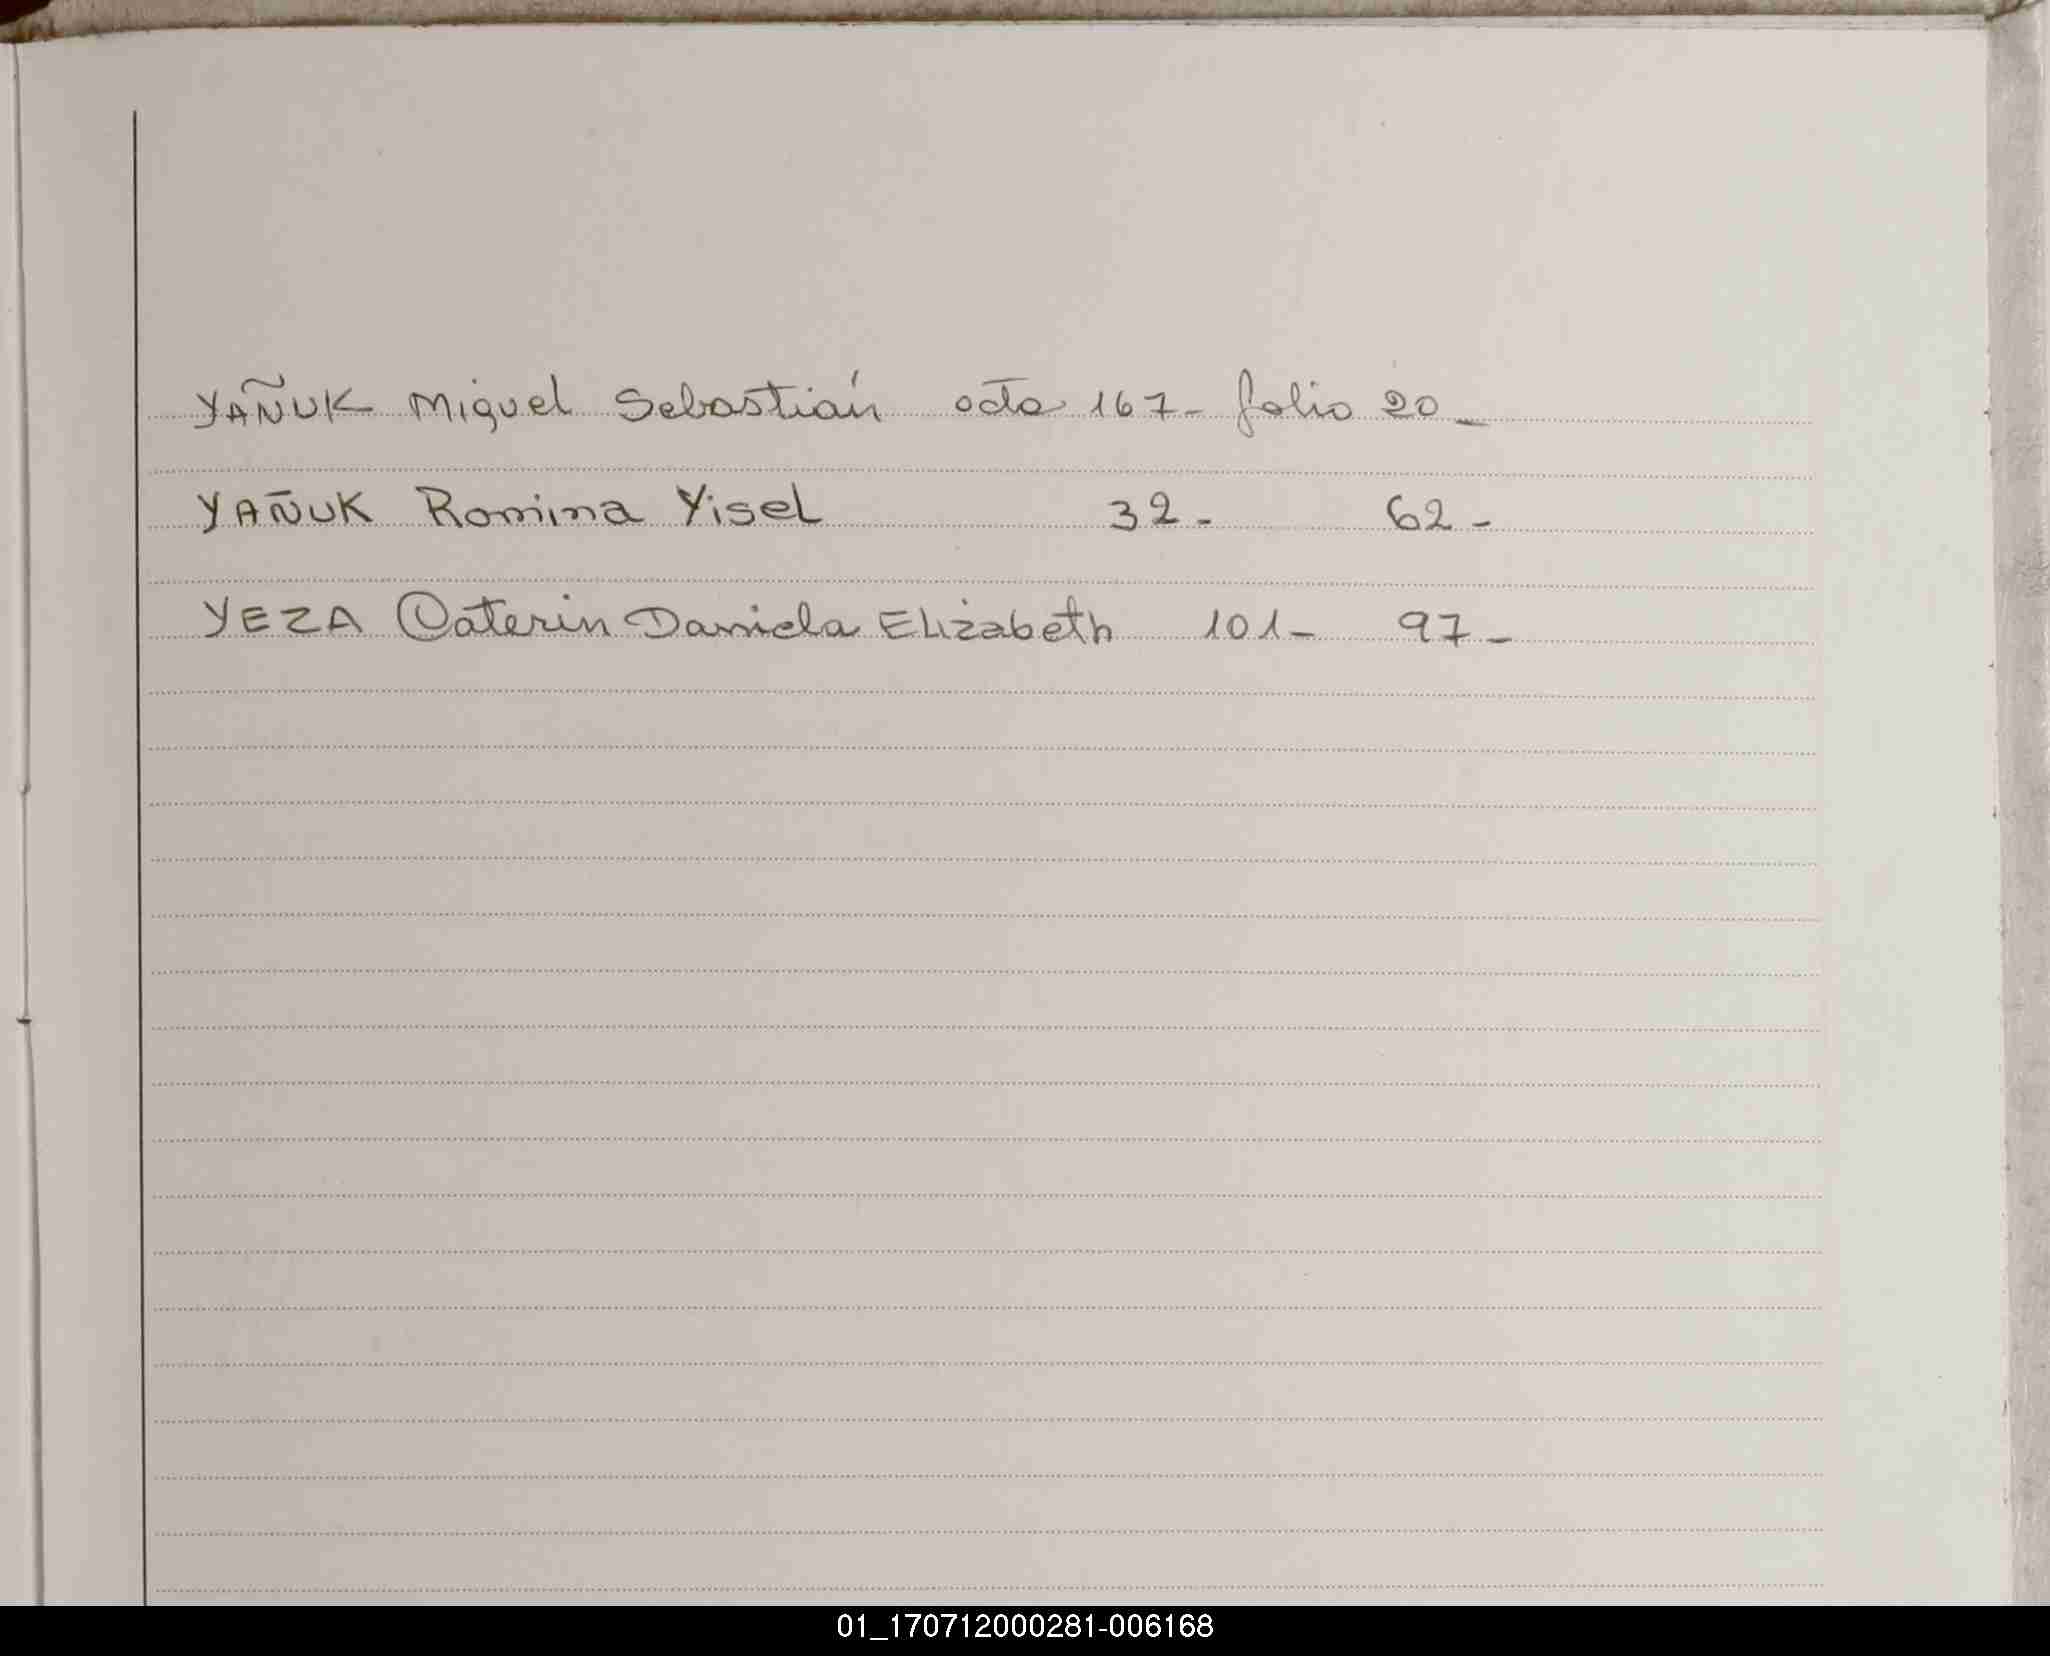 YAÑUK Miguel Sebastián acta 167- folio 20-
YAÑUK Romina Yisel 32- 62-
YEZA Caterin Daniela Elizabeth 101- 97-
01_170712000281-006168